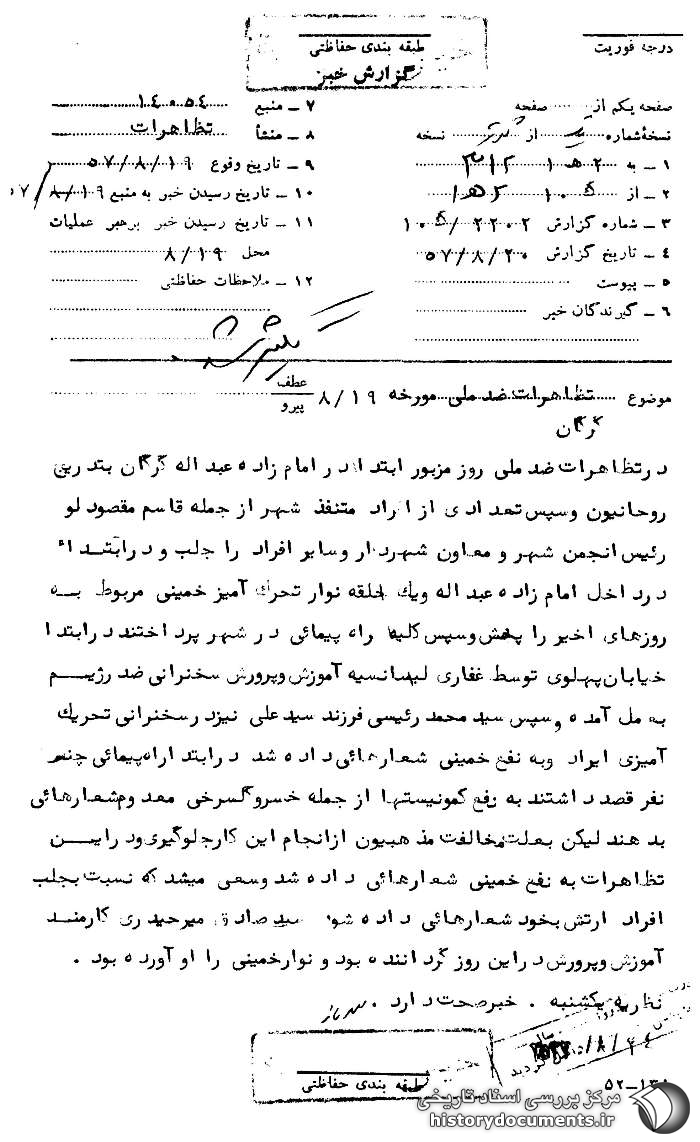 درجه فوریت
طبقه بندی حفاظتی
گزارش خبر
صفحه یکم از صفحه
نسخهٔ شماره از نسخه
۱ ـ به ۲ ه ۱ ۳۱۲
۲ ـ از
۳ ـ شماره گزارش ۲۲۰۲ /
۴ ـ تاریخ گزارش ۵۷/۸/۲۰
۵ ـ پیوست
۶ ـ گیرندگان خبر
۷ ـ منبع ۱۴۰۵۴
۸ ـ منشأ تظاهرات
۹ ـ تاریخ وقوع ۵۷/۸/۱۹
۱۰ ـ تاریخ رسیدن خبر به منبع ۵۷/۸/۱۹
۱۱ ـ تاریخ رسیدن خبر برهبر عملیات
محل ۸/۱۹
۱۲ ـ ملاحظات حفاظتی
موضوع تظاهرات ضد ملی مورخه ۸/۱۹
عطف
پیرو
گرگان
درتظاهرات ضد ملی روز مزبور ابتدا در امام زاده عبد اله گرگان بتدریج
روحانیون وسپس تعدادی از افراد متنفذ شهر از جمله قاسم مقصود لو
رئیس انجمن شهر و معاون شهردار وسایر افراد را جلب و درابتدا
درداخل امام زاده عبد اله ویك حلقه نوار تحرك آمیز خمینی مربوط به
روزهای اخیر را پخش وسپس کلیه راه پیمائی در شهر پرداختند درابتدا
خیابان پهلوی توسط غفاری لیسانسیه آموزش وپرورش سخنرانی ضد رژیم
به مل آمده وسپس سید محمد رئیسی فرزند سید علی نیزد رسخنرانی تحریك
آمیزی ایراد وبه نفع خمینی شعارهائی داده شد درابتدا راه پیمائی چند
نفر قصد داشتند به رفع کمونیستها از جمله خسرو گلسرخی معدوم شعارهائی
بدهند لیکن بعلت مخالفت مذهبیون ازانجام این کار جلوگیری ود راین
تظاهرات به نفع خمینی شعارهائی داده شد وسعی میشد که نسبت بجلب
افراد ارتش بخود شعارهائی داده شود سید صادق میرحیدری کارمند
آموزش وپرورش دراین روز گرداننده بود و نوارخمینی را او آورده بود .
نظریه یکشنبه . خبر صحت دارد .
طبقه بندی حفاظتی
مرکز بررسی اسناد تاریخی
historydocuments.ir